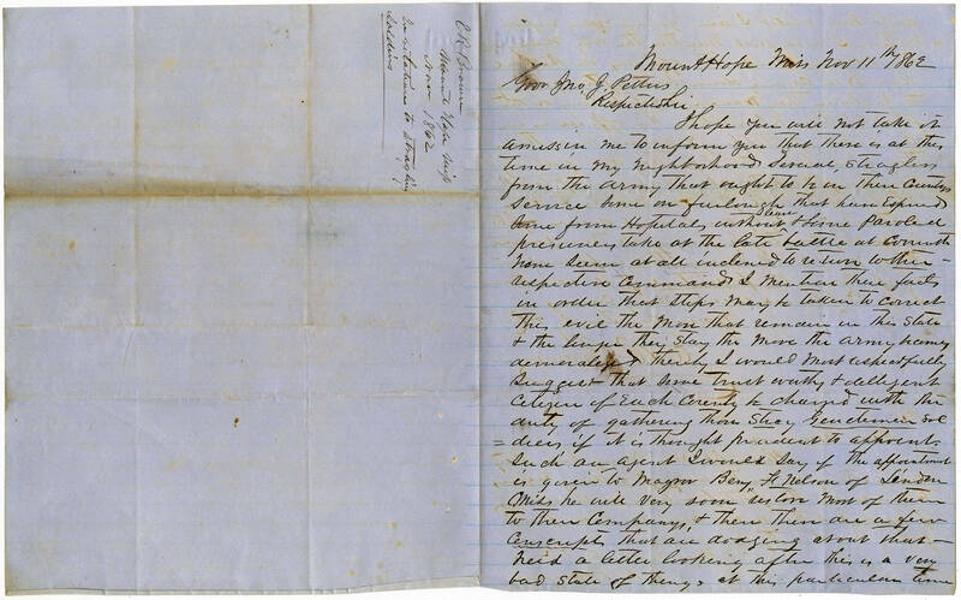 E R Brown
Mount Hope Miss
Nov 1862
In relation to straglin
Soldiers
Mount Hope Miss Nov 11th 1862
Gov Jno J. Pettus
Respected Sir
I hope you will not take it
amiss in me to inform you that there is at this
time in my neighborhood Several Straglers
from the army that ought to be in their Countrys
Service Some on furloughs that have Expired
Some from Hospitals without leave & Some Paroled
prisoners take at the late battle at Corinth
None Seem at all inclined to return to their
respective Commands I mention these facts
in order that Steps may be taken to correct
this evil the More that remain in this State
& the longer they Stay the More the army becomes
demoralized thereby I would Most respectfully
Suggest that Some trust worthy & delligent
Citizen of Each County be charged with the
duty of gathering those Stray Gentlemen Sol
=diers if it is thought prudent to appoint
Such an agent I would Say if the appointment
is given to Magor Benj F Nelson of
Miss he will Very soon restore Most of them
to their Companys, & then there are a few
Conscripts that are dodging about that
Need a little looking after this is a very
bad State of things at this particular time